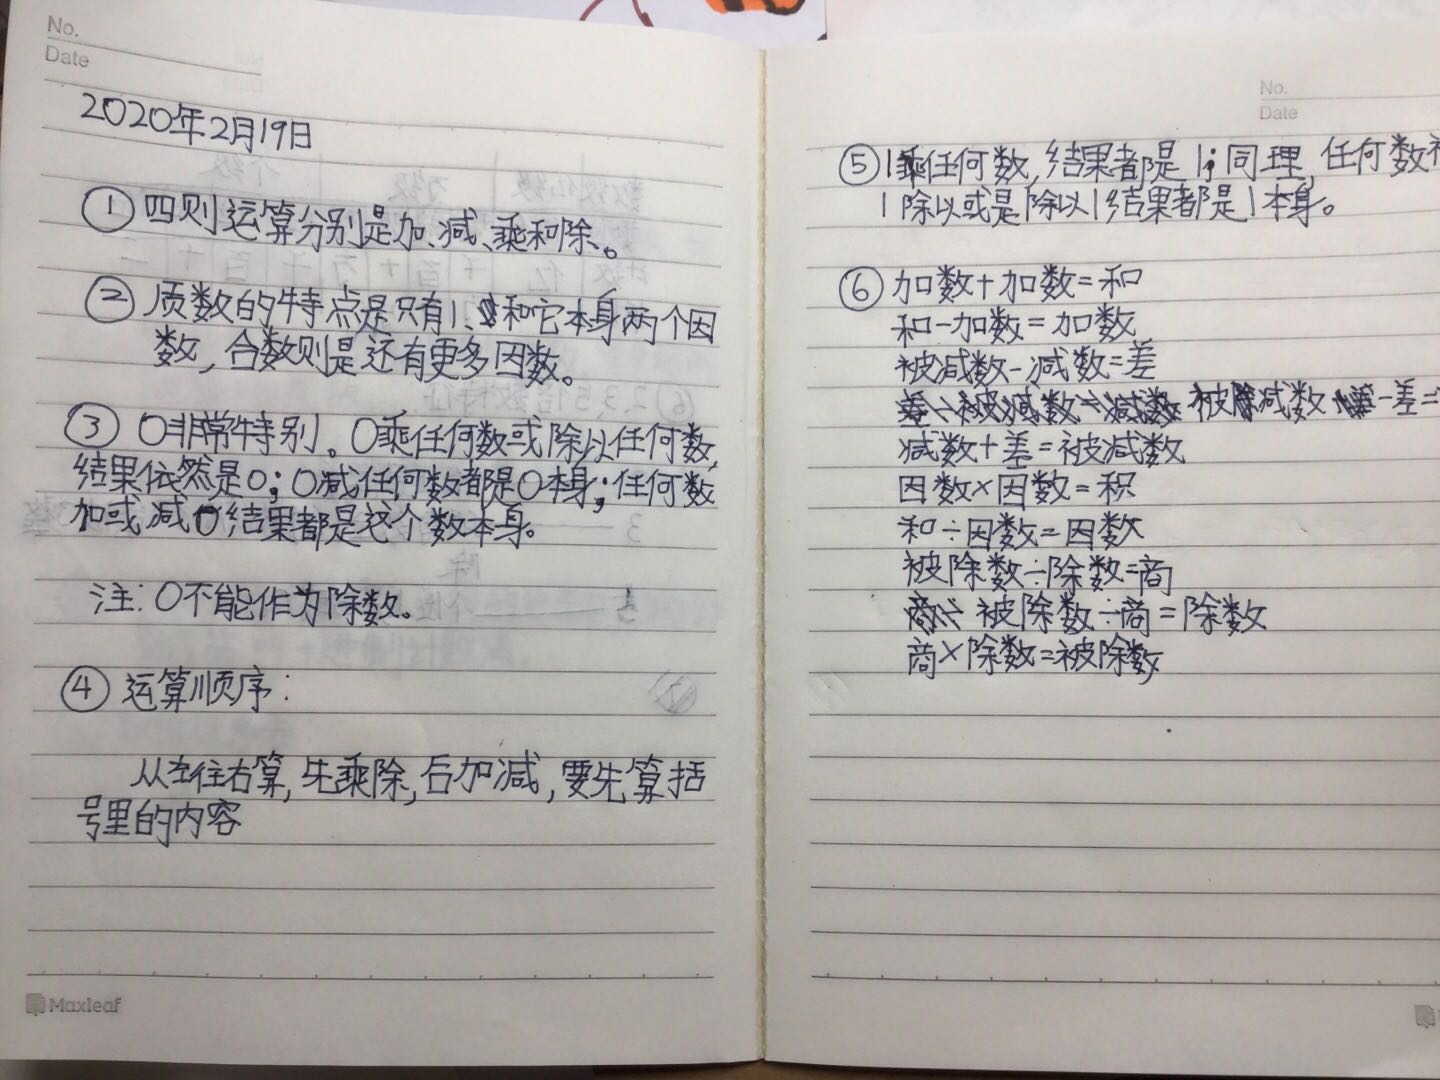 No.
Date
2020年2月19日
① 四则运算分别是加、减、乘和除。
② 质数的特点是只有1、和它本身两个因
数,合数则是还有更多因数。
③ 0非常特别。0乘任何数或除以任何数,
结果依然是0;0减任何数都是0本身;任何数
加或减0结果都是这个数本身。
注:0不能作为除数。
④ 运算顺序:
从左往右算,先乘除,后加减,要先算括
号里的内容
Maxleaf
No.
Date
⑤ 1乘任何数,结果都是1;同理,任何数
1除以或是除以1结果都是1本身。
⑥ 加数+加数=和
和-加数=加数
被减数-减数=差
被减数-差=
减数+差=被减数
因数×因数=积
和÷因数=因数
被除数÷除数=商
被除数÷商=除数
商×除数=被除数